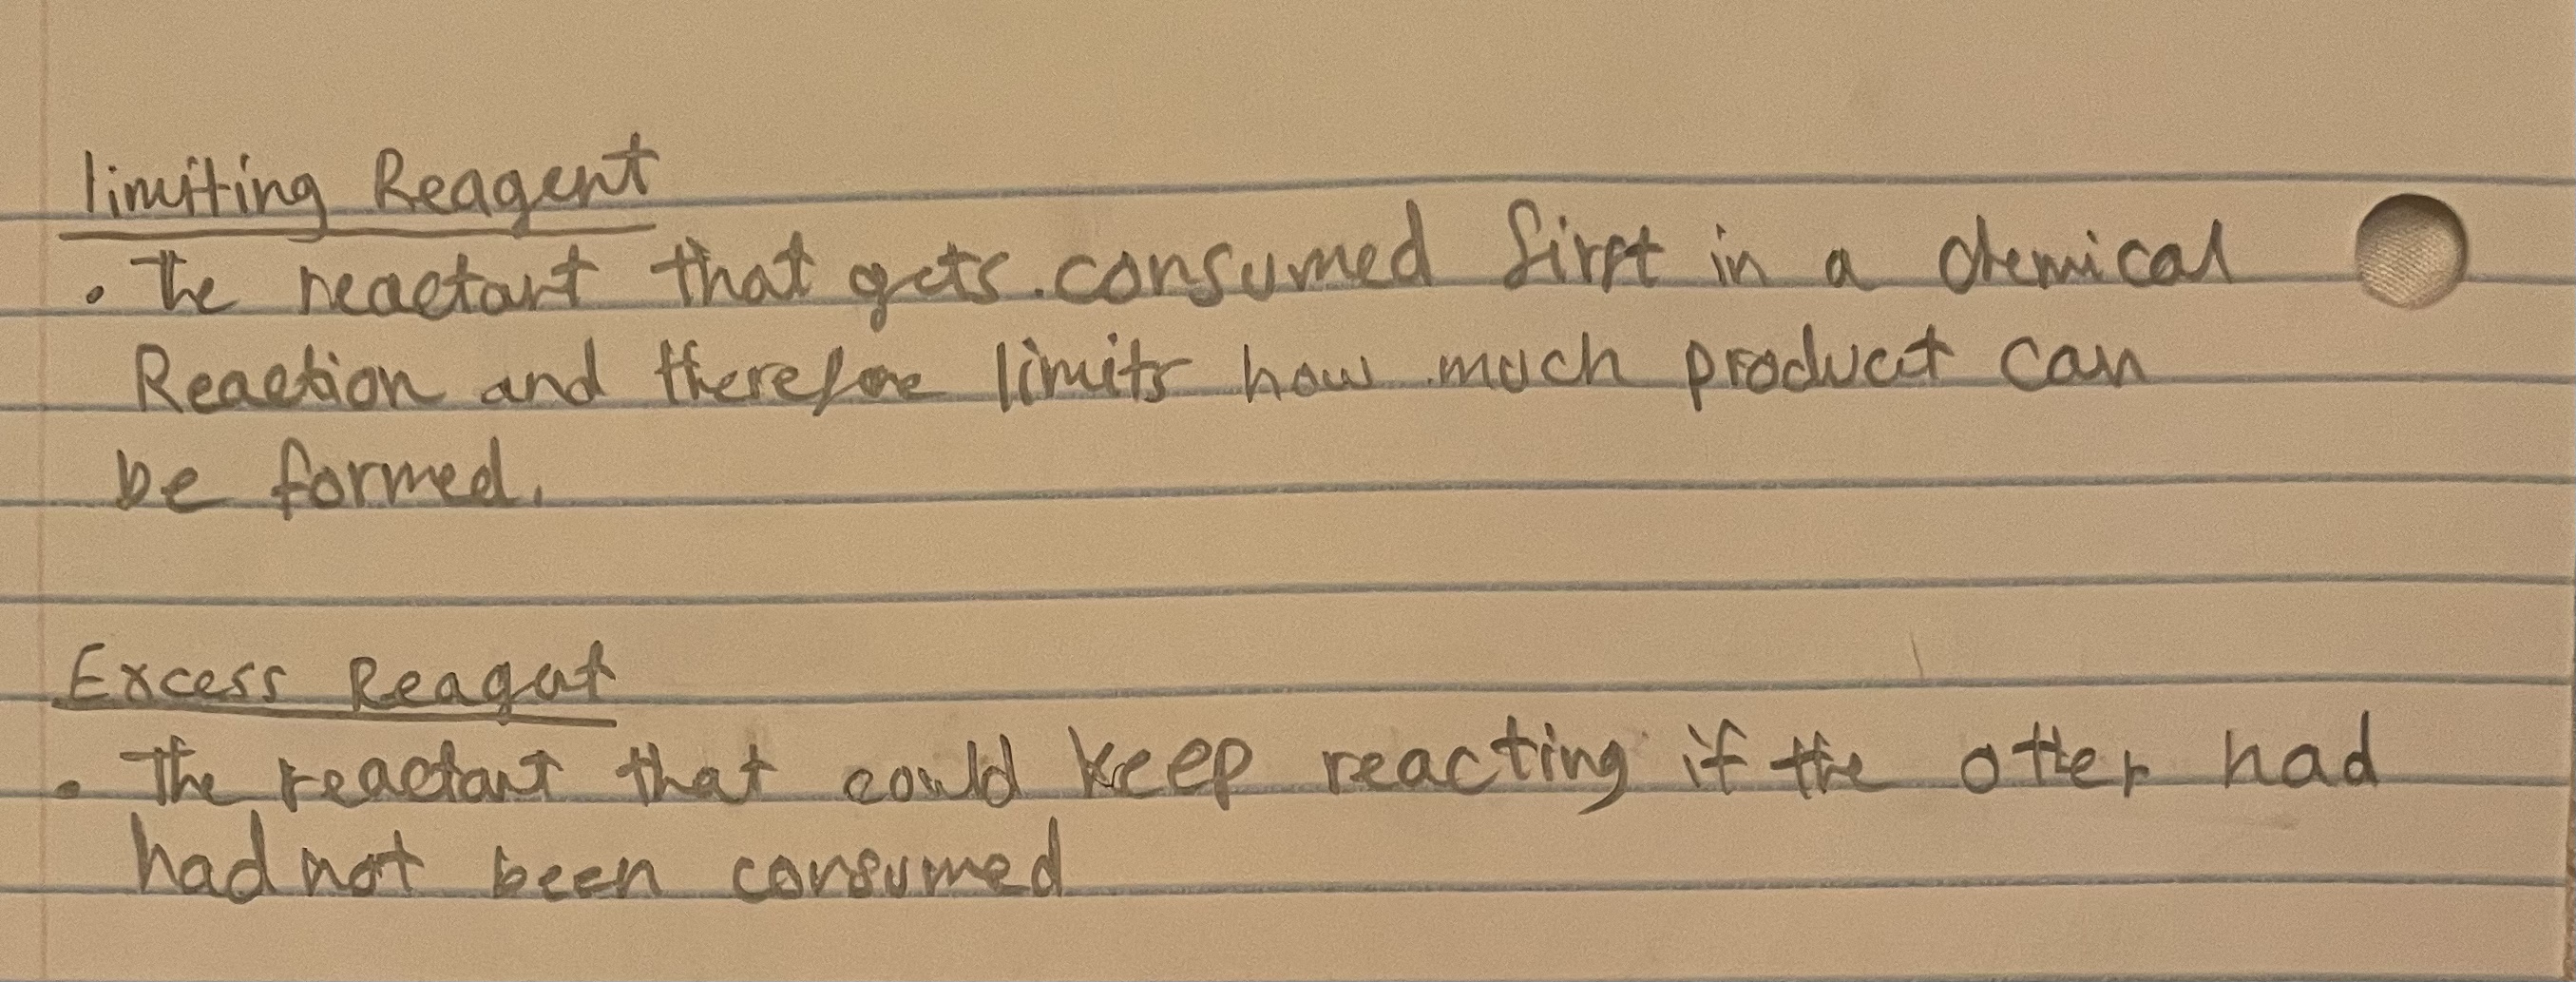 limiting Reagent
• The reactant that gets consumed first in a chemical
Reaction and therefore limits how much product can
be formed.
Excess Reagent
• The reactant that could keep reacting if the other had
had not been consumed